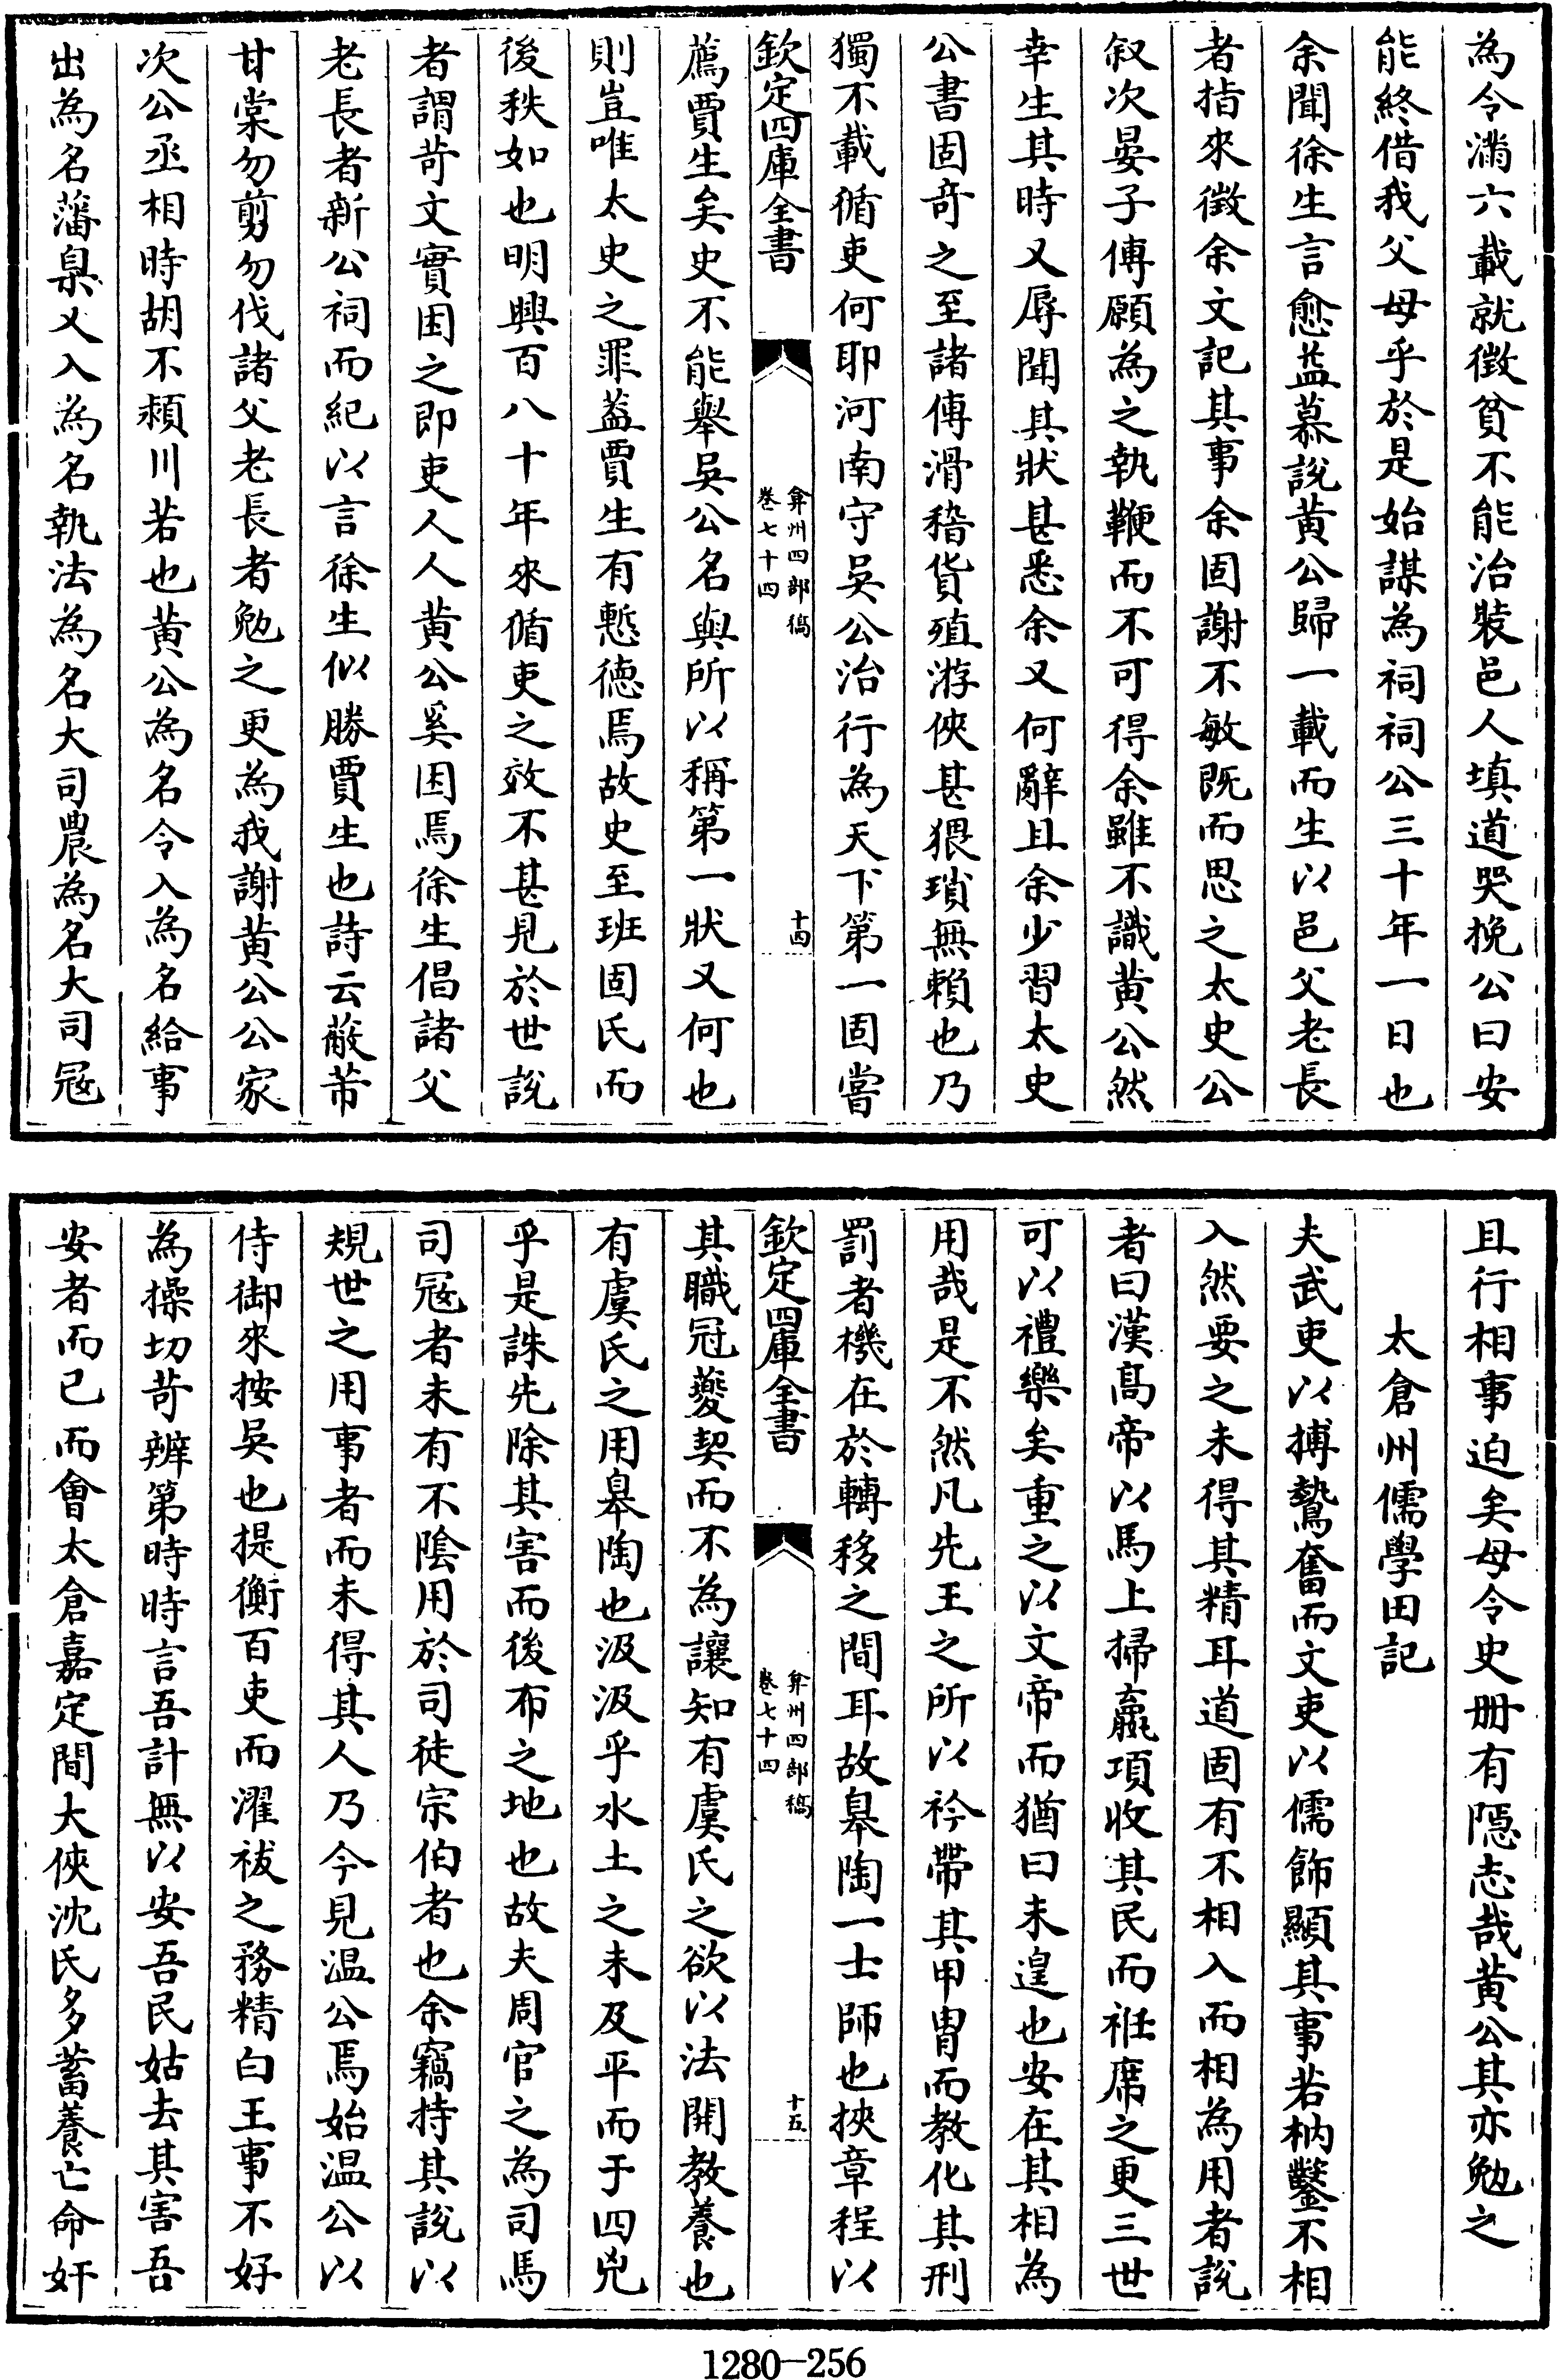 為令滿六載就徴貧不能治裝邑人填道哭挽公曰安
能終借我父母乎於是始謀為祠祠公三十年一日也
余聞徐生言愈益慕說黄公歸一載而生以邑父老長
者指來徴余文記其事余固謝不敏既而思之太史公
叙次晏子傳願為之執鞭而不可得余雖不識黄公然
幸生其時又辱聞其狀甚悉余又何辭且余少習太史
公書固竒之至諸傳滑稽貨殖游俠甚猥瑣無賴也乃
獨不載循吏何耶河南守吳公治行為天下第一固嘗
欽定四庫全書
弇州四部稿
卷七十四
十四
薦賈生矣史不能舉吳公名與所以稱第一狀又何也
則豈唯太史之罪葢賈生有慙德焉故史至班固氏而
後秩如也明興百八十年來循吏之效不甚見於世說
者謂苛文實困之即吏人人黄公奚困焉徐生倡諸父
老長者新公祠而紀以言徐生似勝賈生也詩云蔽芾
甘棠勿剪勿伐諸父老長者勉之更為我謝黄公公家
次公丞相時胡不頴川若也黄公為名令入為名給事
出為名藩臬又入為名執法為名大司農為名大司冦
且行相事迫矣毋令史册有隠志哉黄公其亦勉之
太倉州儒學田記
夫武吏以搏鷙奮而文吏以儒飾顯其事若枘鑿不相
入然要之未得其精耳道固有不相入而相為用者說
者曰漢髙帝以馬上掃嬴項收其民而袵席之更三世
可以禮樂矣重之以文帝而猶曰未遑也安在其相為
用哉是不然凡先王之所以衿帶其甲胄而教化其刑
罰者機在於轉移之間耳故臯陶一士師也挾章程以
欽定四庫全書
弇州四部稿
卷七十四
十五
其職冠夔契而不為讓知有虞氏之欲以法開教養也
有虞氏之用臯陶也汲汲乎水土之未及平而于四兇
乎是誅先除其害而後布之地也故夫周官之為司馬
司冦者未有不陰用於司徒宗伯者也余竊持其說以
規世之用事者而未得其人乃今見温公焉始温公以
侍御來按吳也提衡百吏而濯祓之務精白王事不好
為操切苛辨第時時言吾計無以安吾民姑去其害吾
安者而已而會太倉嘉定間大俠沈氏多蓄養亡命奸
1280-256